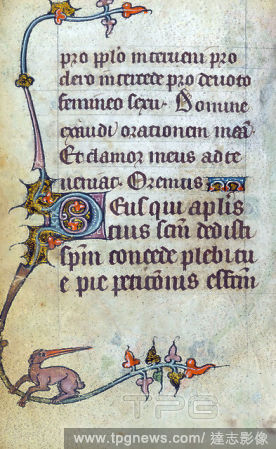 pro pplo interueni pro
clero intercede pro deuoto
femineo sexu. Domine
exaudi orationem meā
Et clamor meus ad te
ueniat. Oremus
Deus qui aplis
tuis scm dedisti
spm concede plebi tu
e pie peticionis effectum
TPG
www.tpgnews.com/ 達志影像